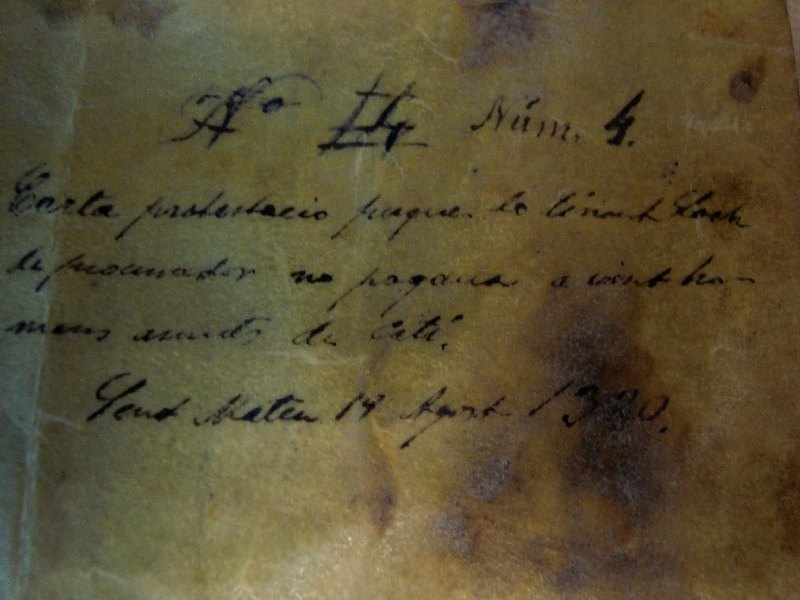 Nº 14 Núm. 4.
Carta protestacio perque lo tinent Loch
de procurador no pagava a vint ho-
mens de Catí.
Sent Mateu 19 Agost